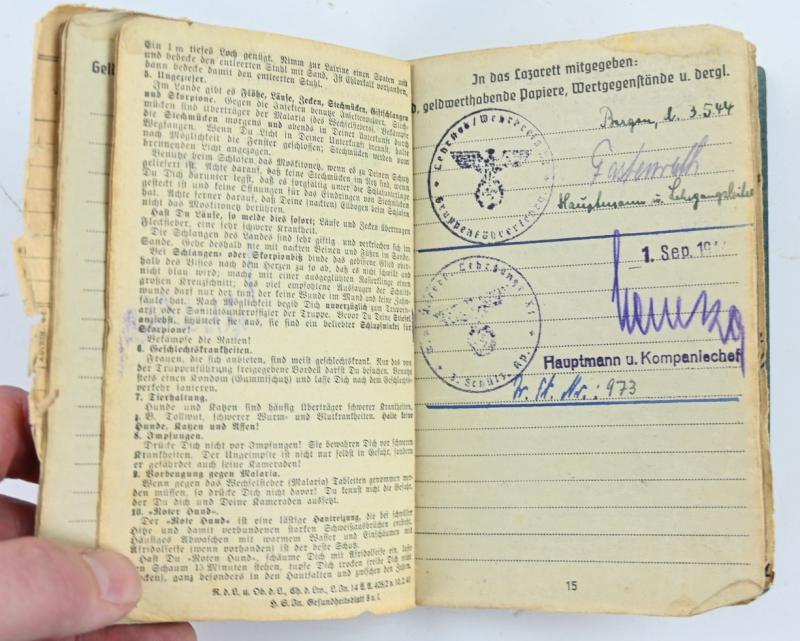 Ein 1 m tiefes Loch genügt. Nimm zur Latrine einen Spaten mit
und bedecke den entleerten Stuhl mit Sand. Ist Chlorkalk vorhanden,
dann bedecke damit den entleerten Stuhl.
5. Ungeziefer.
Im Lande gibt es Flöhe, Läuse, Zecken, Stechmücken, Giftschlangen
und Skorpione. Gegen die Insekten benutze Insektenpulver. Stech-
mücken sind Überträger der Malaria (des Wechselfiebers). Bekämpfe
die Stechmücken morgens und abends in Deiner Unterkunft durch
Wegfangen. Wenn Du Licht in Deiner Unterkunft brennst, halte
nach Möglichkeit die Fenster geschlossen; Stechmücken werden vom
brennenden Licht angezogen.
Benutze beim Schlafen das Moskitonetz, wenn es zu Deinen Schutz
geliefert ist. Achte darauf, daß keine Stechmücken im Netz sind, wenn
Du Dich darunter legst, daß es sorgfältig unter die Schlafunterlage
gesteckt ist und keine Öffnungen für das Eindringen von Stechmücken
hat. Achte ferner darauf, daß Deine (nackten) Ellbogen beim Schlafen
nicht das Moskitonetz berühren.
Hast Du Läuse, so melde dies sofort; Läuse und Zecken übertragen
Fleckfieber, eine sehr schwere Krankheit.
Die Schlangen des Landes sind sehr giftig und verkriechen sich im
Sande. Gehe deshalb nie mit nackten Beinen und Füßen im Sande.
Bei Schlangen- oder Skorpionbiß binde das gebissene Glied ober-
halb des Bisses nach dem Herzen zu so ab, daß es nicht schnell
nicht blau wird; mache mit einer ausgeglühten Rasierklinge einen
großen Kreuzschnitt; das viel empfohlene Aussaugen der Schnitt-
wunde darf nur der tun, der keine Wunde im Mund und keine Zahn-
fäule hat. Nach Möglichkeit begib Dich unverzüglich zum Truppen-
arzt oder Sanitätsunteroffizier der Truppe. Bevor Du Deine Stiefel
anziehst, schüttele sie aus, sie sind ein beliebter Schlupfwinkel für
Skorpione!
Bekämpfe die Ratten!
6. Geschlechtskrankheiten.
Frauen, die sich anbieten, sind meist geschlechtskrank. Nur das von
der Truppenführung freigegebene Bordell darfst Du besuchen. Benutze
stets einen Kondom (Gummischutz) und lasse Dich nach dem Geschlechts-
verkehr sanieren.
7. Tierhaltung.
Hunde und Katzen sind häufig Überträger schwerer Krankheiten,
z. B. Tollwut, schwerer Wurm- und Blutkrankheiten. Halte keine
Hunde, Katzen und Affen!
8. Impfungen.
Drücke Dich nicht vor Impfungen! Sie bewahren Dich vor schweren
Krankheiten. Der Ungeimpfte ist nicht nur selbst in Gefahr, sondern
er gefährdet auch seine Kameraden!
9. Vorbeugung gegen Malaria.
Wenn gegen das Wechselfieber (Malaria) Tabletten genommen wer-
den müssen, so drücke Dich nicht davor! Du kennst nicht die Gefahr,
der Du dich und Deine Kameraden aussetzt.
10. »Roter Hund«.
Der »Rote Hund« ist eine lästige Hautreizung, die bei schwüler
Hitze und damit verbundenen starken Schweißausbrüchen entsteht.
Häufiges Abwaschen mit warmem Wasser und Einschäumen mit
Afridolseife (wenn vorhanden) ist der beste Schutz.
Hast Du »Roten Hund«, schäume Dich mit Afridolseife ein, lasse
den Schaum 15 Minuten stehen, tupfe Dich trocken (reibe Dich nicht
trocken), ganz besonders in den Hautfalten und zwischen den Zehen.
R. d. L. u. Ob. d. L., Ch. d. Lw., L. In. 14
H. S. In. Gesundheitsblatt 8 u. 1.
Geld
In das Lazarett mitgegeben:
geldwerthabende Papiere, Wertgegenstände u. dergl.
Bergen, d. 3.5.44
Fastenrath
Hauptmann u. Lehrgangsleiter
Gruppenführerlehrg.
1. Sep. 19
Hauptmann u. Kompaniechef
W. St. Nr.: 973
15